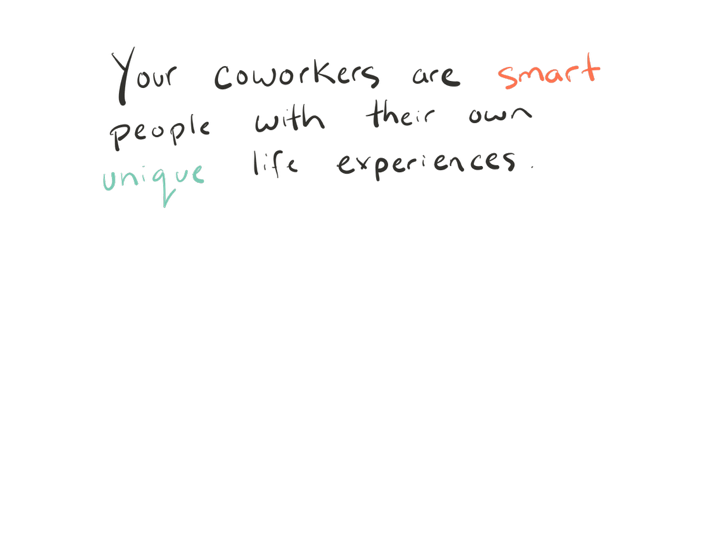 Your coworkers are smart
people with their own
unique life experiences.